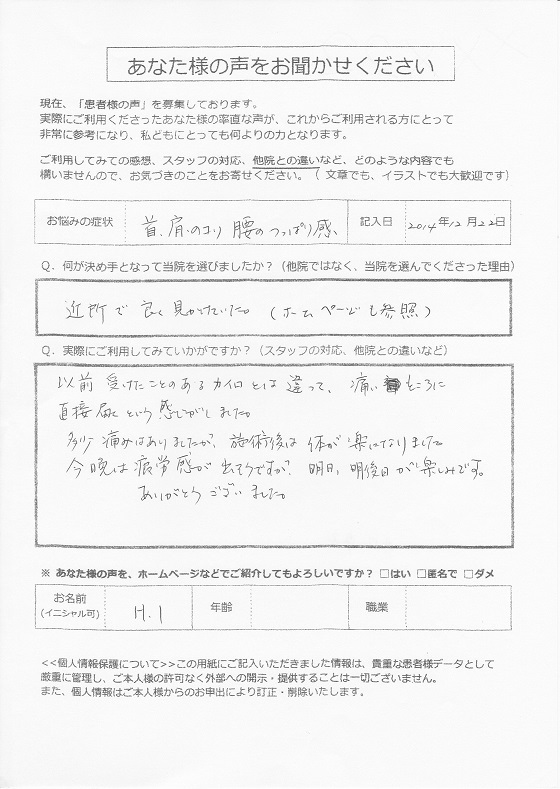 あなた様の声をお聞かせください
現在、「患者様の声」を募集しております。
実際にご利用くださったあなた様の率直な声が、これからご利用される方にとって
非常に参考になり、私どもにとっても何よりの力となります。
ご利用してみての感想、スタッフの対応、他院との違いなど、どのような内容でも
構いませんので、お気づきのことをお寄せください。（ 文章でも、イラストでも大歓迎です）
お悩みの症状 首、肩、のコリ 腰のつっぱり感、 記入日 2014年12月22日
Q．何が決め手となって当院を選びましたか？（他院ではなく、当院を選んでくださった理由）
近所で良く見かけていた。（ホームページも参照）
Q．実際にご利用してみていかがですか？（スタッフの対応、他院との違いなど）
以前受けたことのあるカイロとは違って、痛いところに
直接届くという感じがしました。
多少痛みはありましたが、施術後は体が楽になりました
今晩は疲労感が出そうですが、明日、明後日が楽しみです。
ありがとうございました。
※ あなた様の声を、ホームページなどでご紹介してもよろしいですか？ □はい □匿名で □ダメ
お名前 H.I 年齢 職業
(イニシャル可)
<<個人情報保護について>>この用紙にご記入いただきました情報は、貴重な患者様データとして
厳重に管理し、ご本人様の許可なく外部への開示・提供することは一切ございません。
また、個人情報はご本人様からのお申出により訂正・削除いたします。